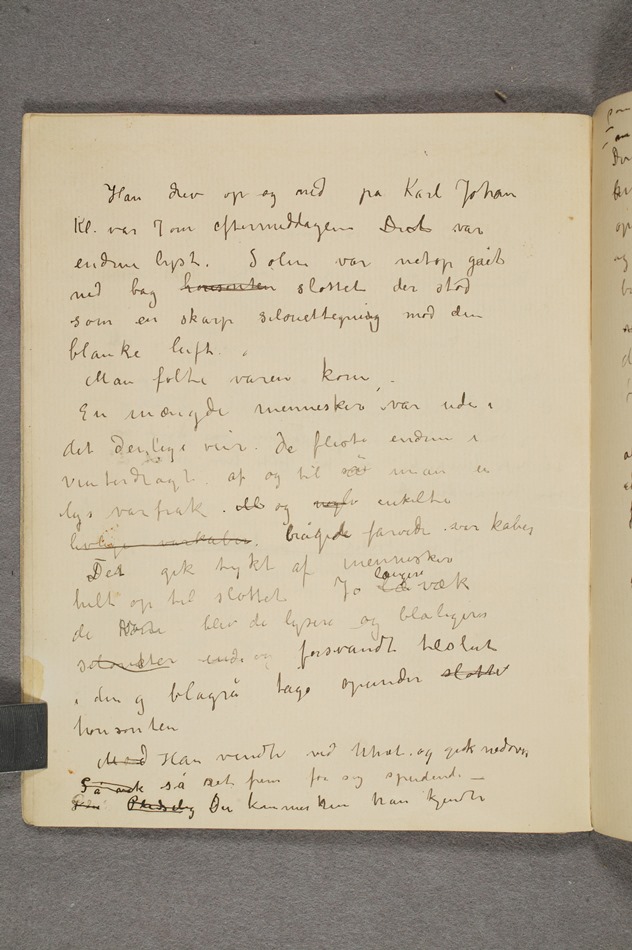 Han drev op og ned pa Karl Johan
Kl. var 7 om eftermiddagen Det var
endnu lyst. Solen var netop gåët
ned bag horisonten slottet der stod
som en skarp silouettegning mod den
blanke luft.
Man følte varen kom.
En mængde mennesker var ude i
det deilige veir. De fleste endnu i
vinterdragt. af og til så man en
lys varfrak. og enkelte
farvede var kaber
Det gik tykt af mennesker
helt op til slottet Jo længere væk
de blev de lysere og blåligere
silouetter og forsvandt tilslut
i den g blagrå tage opunder slottet
horisonten
Med Han vendte ved Univ. og gik nedover
Så gik så ret frem for sig spendende —
Pludselig Der kommer hun han kjendte